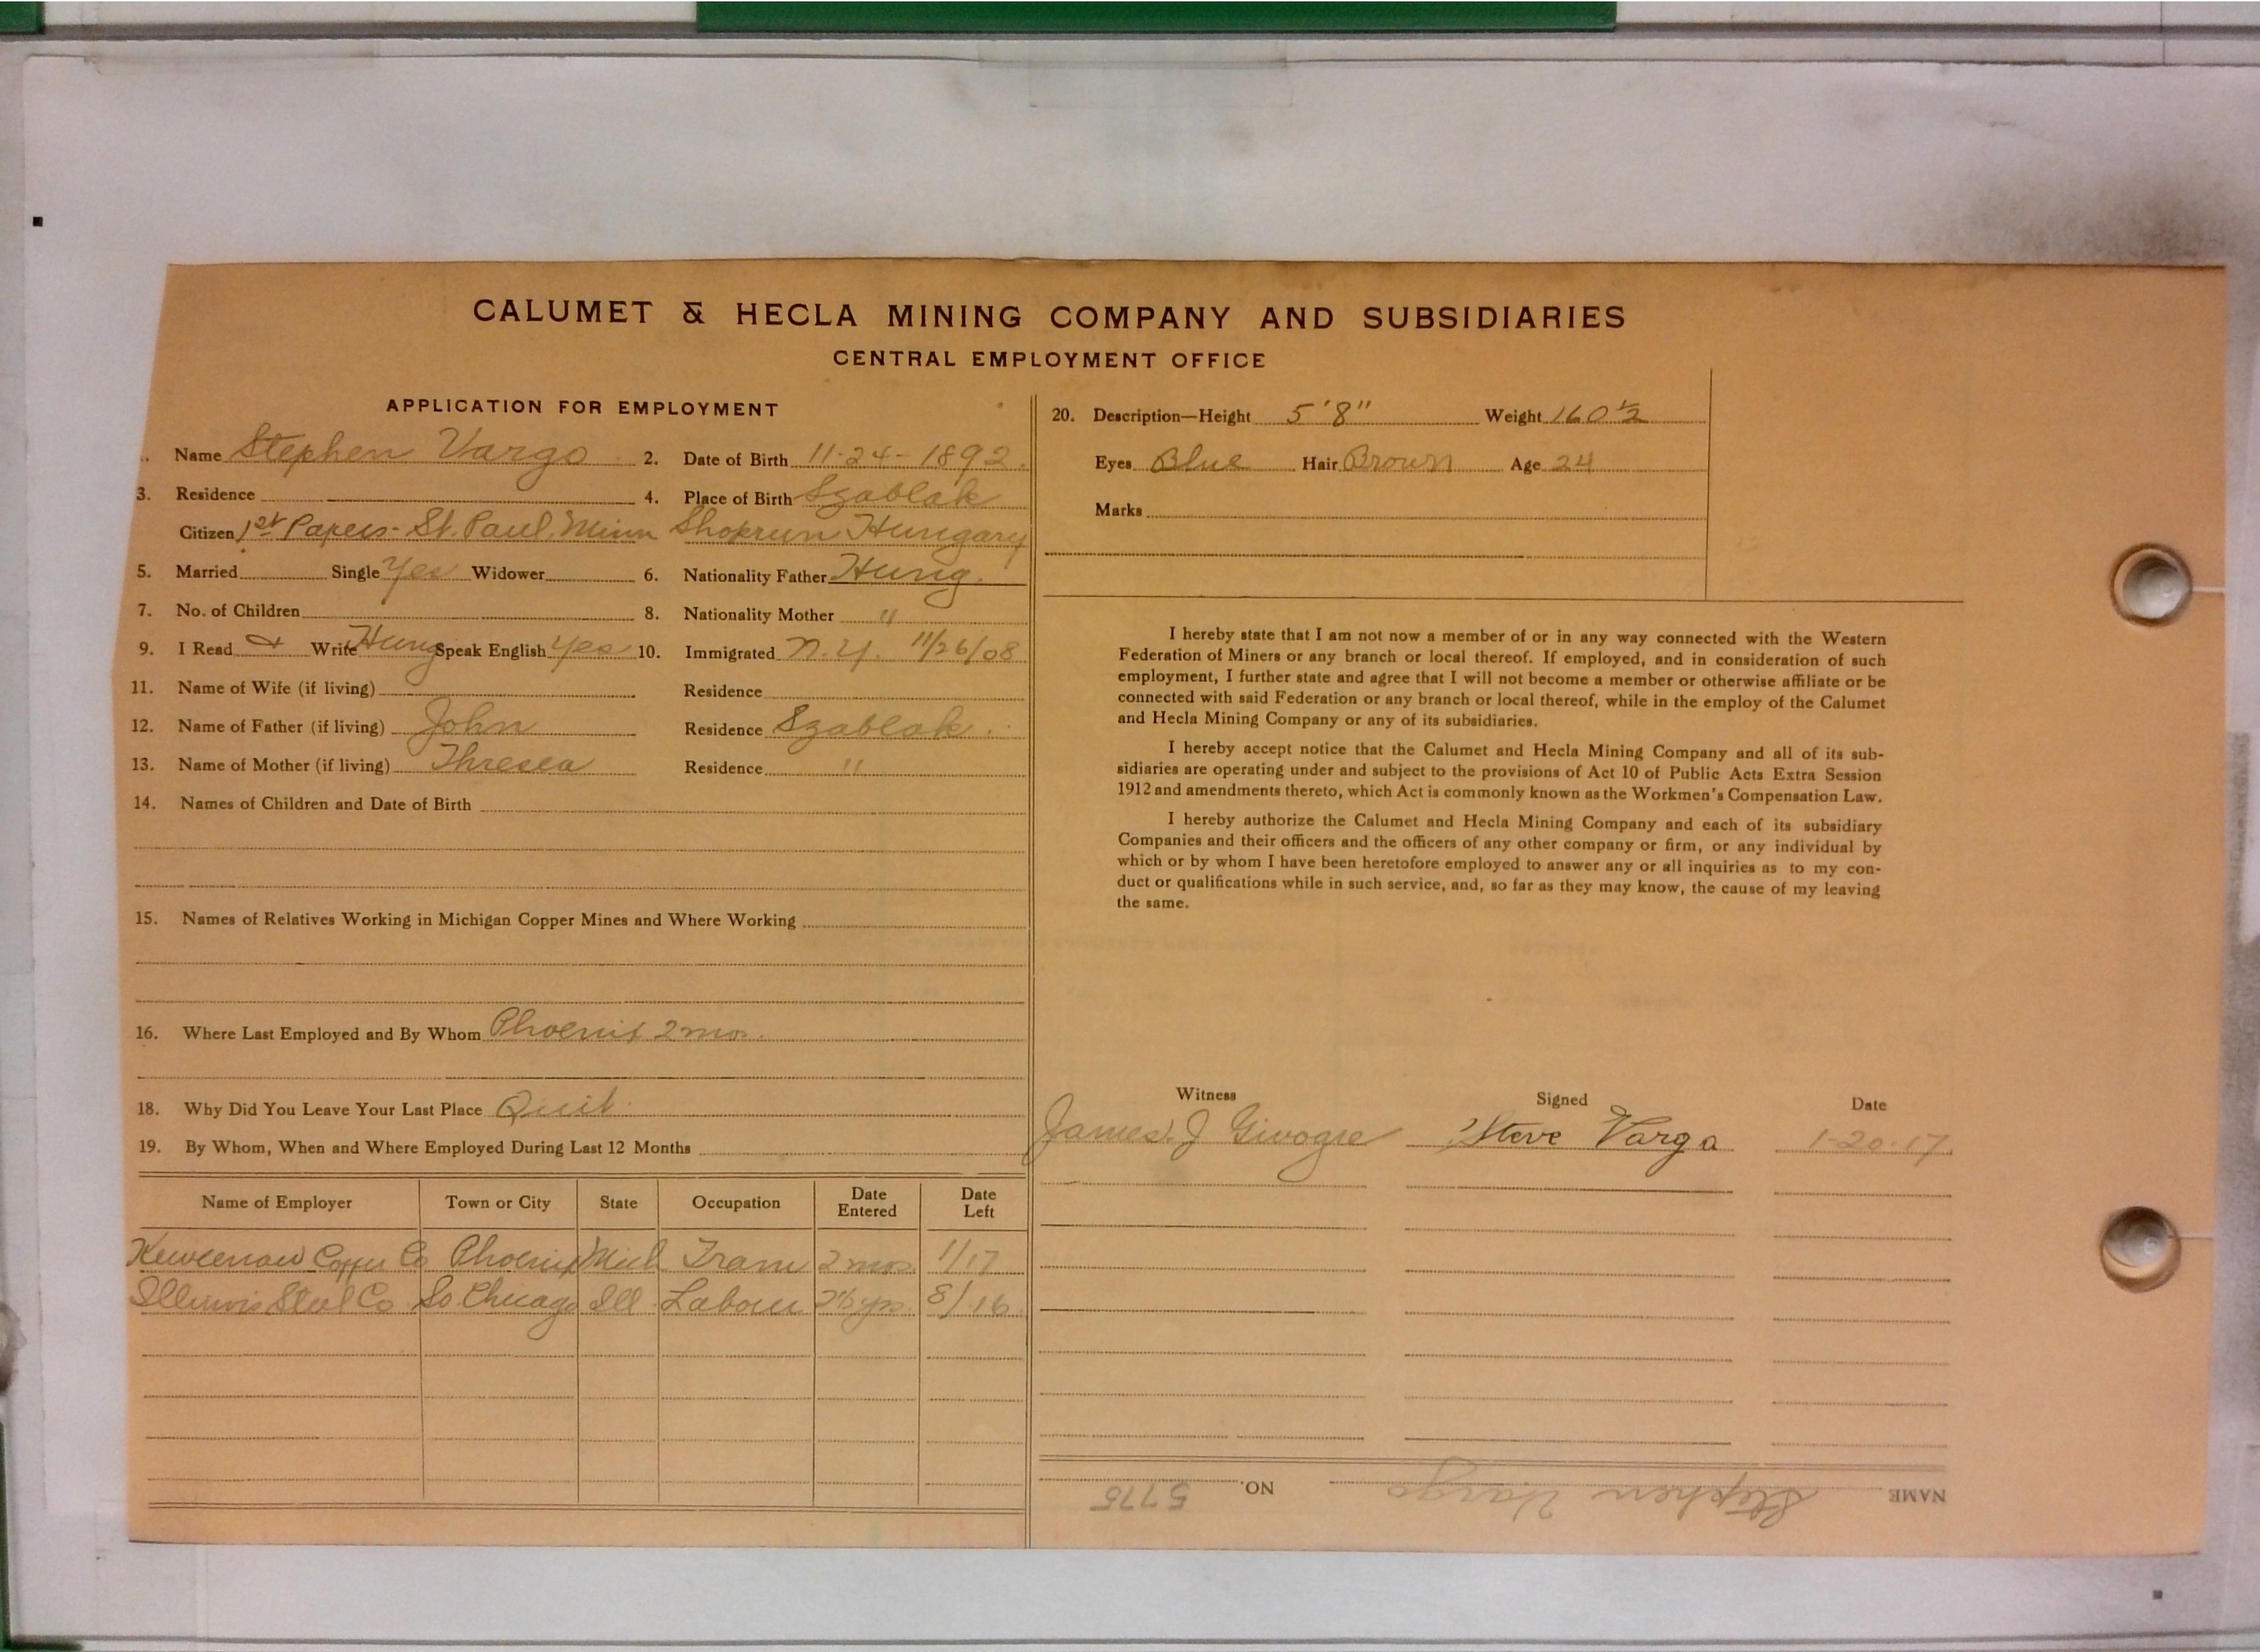 CALUMET & HECLA MINING COMPANY AND SUBSIDIARIES
CENTRAL EMPLOYMENT OFFICE
APPLICATION FOR EMPLOYMENT
Name Stephen Vargo 2. Date of Birth 11-24-1892.
3. Residence 4. Place of Birth Szablak
Citizen 1st Papers - St. Paul, Minn Shoprun Hungary
5. Married Single Yes Widower 6. Nationality Father Hung.
7. No. of Children 8. Nationality Mother "
9. I Read & Write Hung Speak English Yes 10. Immigrated N.Y. 11/26/08
11. Name of Wife (if living) Residence
12. Name of Father (if living) John Residence Szablak.
13. Name of Mother (if living) Thresea Residence "
14. Names of Children and Date of Birth
15. Names of Relatives Working in Michigan Copper Mines and Where Working
16. Where Last Employed and By Whom Phoenix 2 mos.
18. Why Did You Leave Your Last Place Quit
19. By Whom, When and Where Employed During Last 12 Months
Name of Employer Town or City State Occupation Date Entered Date Left
Keweenaw Copper Co Phoenix Mich Tram 2 mos. 1/17
Illinois Steel Co So. Chicago Ill Labour yrs. 8/16
20. Description—Height 5'8" Weight 160 1/2
Eyes Blue Hair Brown Age 24
Marks
I hereby state that I am not now a member of or in any way connected with the Western
Federation of Miners or any branch or local thereof. If employed, and in consideration of such
employment, I further state and agree that I will not become a member or otherwise affiliate or be
connected with said Federation or any branch or local thereof, while in the employ of the Calumet
and Hecla Mining Company or any of its subsidiaries.
I hereby accept notice that the Calumet and Hecla Mining Company and all of its sub-
sidiaries are operating under and subject to the provisions of Act 10 of Public Acts Extra Session
1912 and amendments thereto, which Act is commonly known as the Workmen's Compensation Law.
I hereby authorize the Calumet and Hecla Mining Company and each of its subsidiary
Companies and their officers and the officers of any other company or firm, or any individual by
which or by whom I have been heretofore employed to answer any or all inquiries as to my con-
duct or qualifications while in such service, and, so far as they may know, the cause of my leaving
the same.
Witness Signed Date
James J Steve Varga 1-20-17.
NAME Stephen Vargo NO. 5775